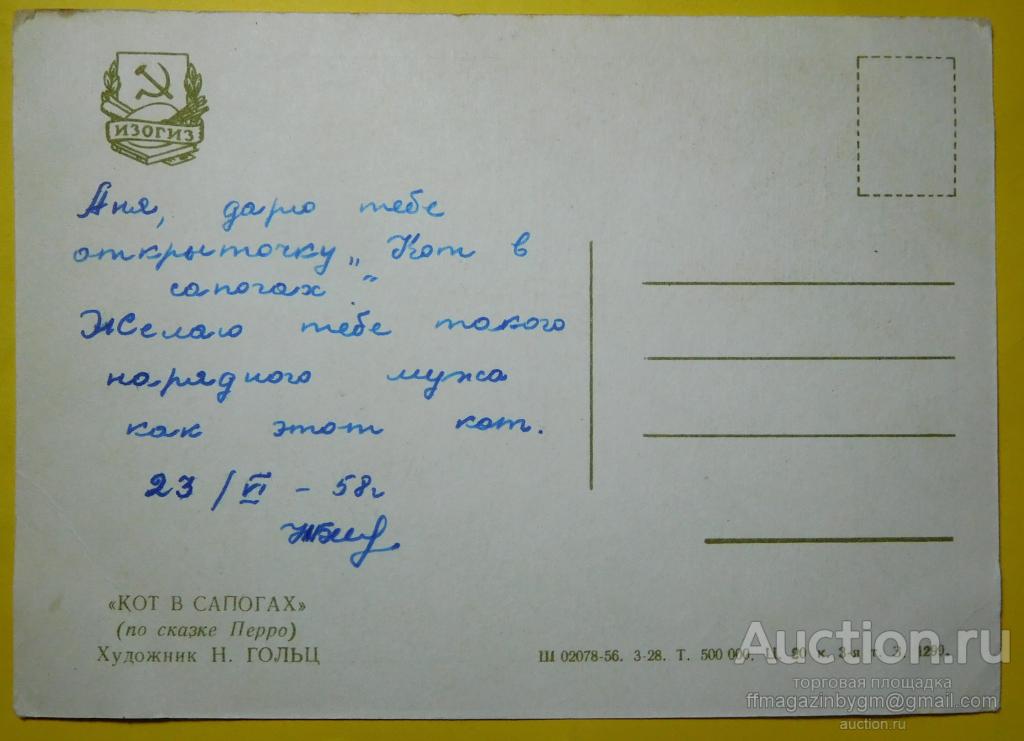 ИЗОГИЗ
Аня, дарю тебе
открыточку „Кот в
сапогах."
Желаю тебе такого
нарядного мужа
как этот кот.
23/VI - 58г
«КОТ В САПОГАХ»
(по сказке Перро)
Художник Н. ГОЛЬЦ
Ш 02078-56. 3-28. Т. 500 000. Ц. 20 к. 3-я т. З. 1299.
Auction.ru
торговая площадка
ffmagazinbygm@gmail.com
auction.ru